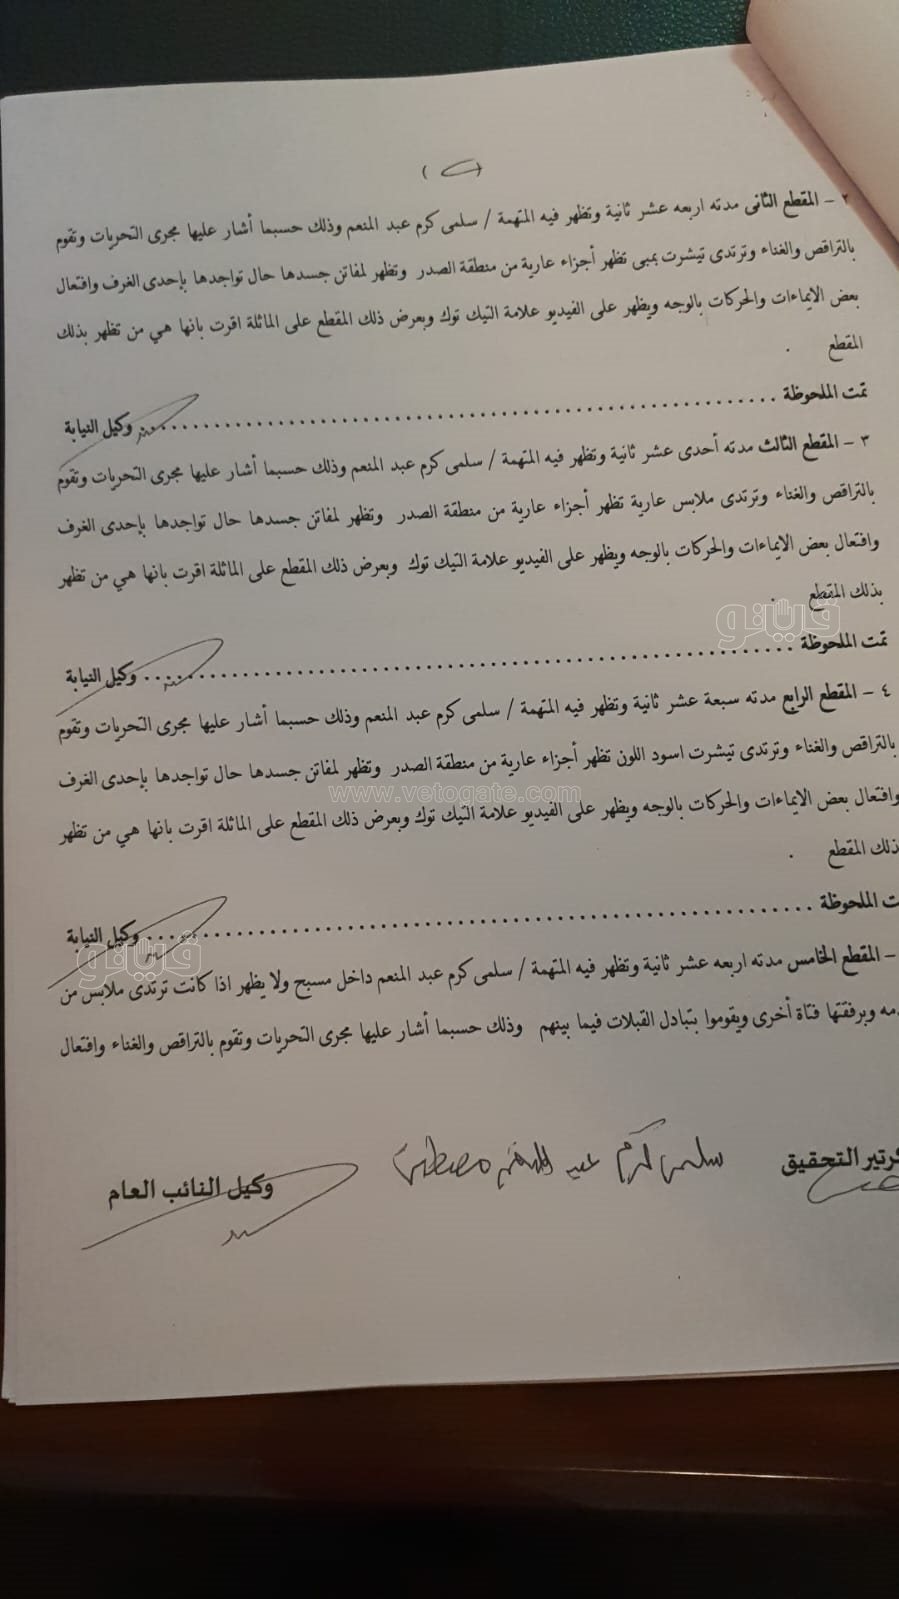 ٢ - المقطع الثانى مدته اربعه عشر ثانية وتظهر فيه المتهمة / سلمى كرم عبد المنعم وذلك حسبما أشار عليها مجرى التحريات وتقوم
بالتراقص والغناء وترتدى تيشرت بمبى تظهر أجزاء عارية من منطقة الصدر وتظهر لمفاتن جسدها حال تواجدها بإحدى الغرف وافتعال
بعض الايماءات والحركات بالوجه ويظهر على الفيديو علامة التيك توك وبعرض ذلك المقطع على الماثلة اقرت بانها هي من تظهر بذلك
المقطع .
تمت الملحوظة .......................................................... وكيل النيابة
٣ - المقطع الثالث مدته أحدى عشر ثانية وتظهر فيه المتهمة / سلمى كرم عبد المنعم وذلك حسبما أشار عليها مجرى التحريات وتقوم
بالتراقص والغناء وترتدى ملابس عارية تظهر أجزاء عارية من منطقة الصدر وتظهر لمفاتن جسدها حال تواجدها بإحدى الغرف
وافتعال بعض الايماءات والحركات بالوجه ويظهر على الفيديو علامة التيك توك وبعرض ذلك المقطع على الماثلة اقرت بانها هي من تظهر
بذلك المقطع .
ڤيتو
تمت الملحوظة .......................................................... وكيل النيابة
٤ - المقطع الرابع مدته سبعة عشر ثانية وتظهر فيه المتهمة / سلمى كرم عبد المنعم وذلك حسبما أشار عليها مجرى التحريات وتقوم
بالتراقص والغناء وترتدى تيشرت اسود اللون تظهر أجزاء عارية من منطقة الصدر وتظهر لمفاتن جسدها حال تواجدها بإحدى الغرف
www.vetogate.com
وافتعال بعض الايماءات والحركات بالوجه ويظهر على الفيديو علامة التيك توك وبعرض ذلك المقطع على الماثلة اقرت بانها هي من تظهر
ذلك المقطع .
ت الملحوظة .......................................................... وكيل النيابة
ڤيتو
- المقطع الخامس مدته اربعه عشر ثانية وتظهر فيه المتهمة / سلمى كرم عبد المنعم داخل مسبح ولا يظهر اذا كانت ترتدى ملابس من
مه وبرفقتها فتاة أخرى ويقوموا بتبادل القبلات فيما بينهم وذلك حسبما أشار عليها مجرى التحريات وتقوم بالتراقص والغناء وافتعال
رتير التحقيق
سلمى كرم عبد المنعم مصطفى
وكيل النائب العام